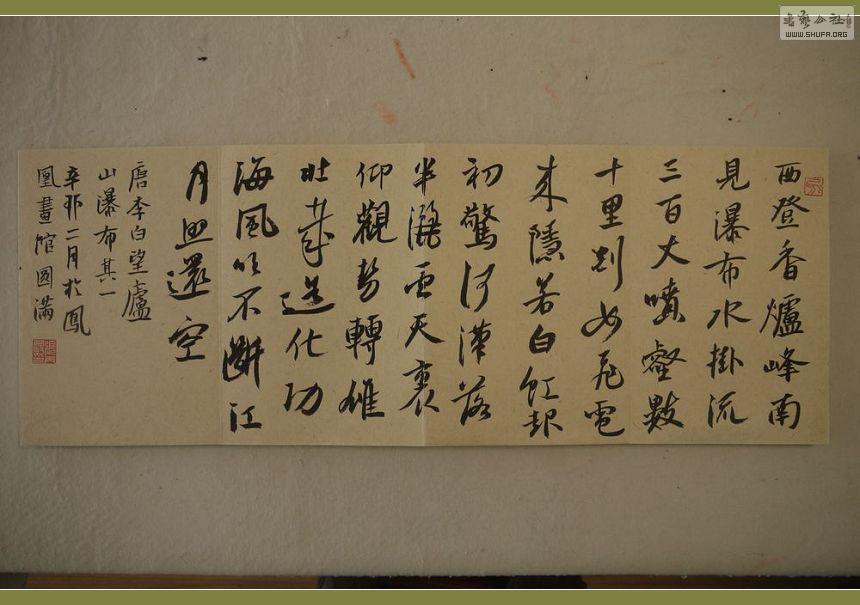 西登香爐峰南
見瀑布水掛流
三百丈噴壑數
十里剡如飛電
来隱若白虹起
初驚河漢落
半灑雲天裏
仰觀勢轉雄
壯哉造化功
海風吹不斷江
月照還空
唐李白望廬
山瀑布其一
辛卯二月於鳳
凰畫馆圆满
書藝公社
WWW.SHUFA.ORG